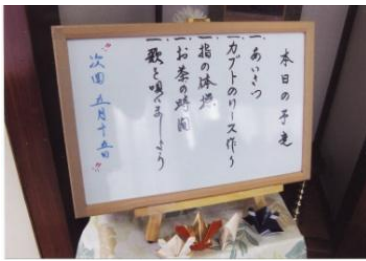 本日の予定
一、あいさつ
一、カブトのリース作り
一、指の体操
一、お茶の時間
一、歌を唄いましょう
次回 五月十五日